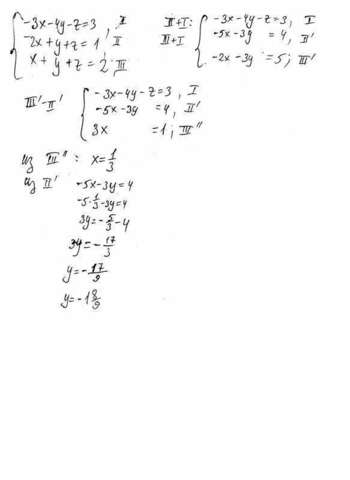 -3x-4y-z=3, I
-2x+y+z=1, II
x+y+z=2; III
II+I:
III+I
-3x-4y-z=3, I
-5x-3y =4, II'
-2x-3y =5; III'
III'-II'
-3x-4y-z=3, I
-5x-3y =4, II'
3x =1; III''
из III'': x=1/3
из II' -5x-3y=4
-5·1/3-3y=4
3y=-5/3-4
3y=-17/3
y=-17/9
y=-1 8/9